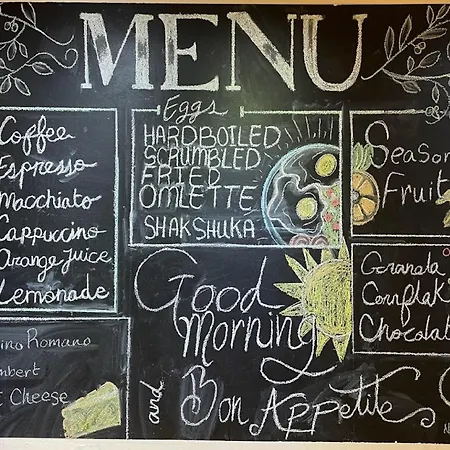 MENU
Coffee
Espresso
Macchiato
Cappuccino
Orange juice
Lemonade
Eggs
HARDBOILED
SCRUMBLED
FRIED
OMLETTE
SHAKSHUKA
Season
Fruit
Granola
Cornflak
Chocolat
ino Romano
mbert
t Cheese
Good
Morning
and
Bon Appetite